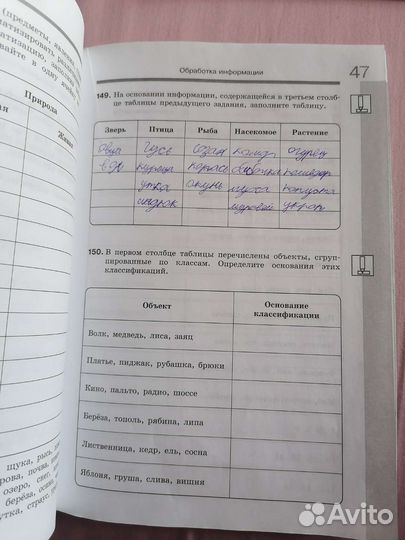 (предметы, явления
матизировать
матизацию, заполн
вайте в одну
Природа
Живая
щука, рысь,
рова, почва,
озеро, снег,
берёза, осина,
утка, страус,
Обработка информации
47
149. На основании информации, содержащейся в третьем столб-
це таблицы предыдущего задания, заполните таблицу.
Зверь Птица Рыба Насекомое Растение
овца гусь сазан комар огурец
курица карась бабочка помидор
утка окунь муха капуста
индюк муравей укроп
150. В первом столбце таблицы перечислены объекты, сгруп-
пированные по классам. Определите основания этих
классификаций.
Объект
Основание
классификации
Волк, медведь, лиса, заяц
Платье, пиджак, рубашка, брюки
Кино, пальто, радио, шоссе
Берёза, тополь, рябина, липа
Лиственница, кедр, ель, сосна
Яблоня, груша, слива, вишня
Avito